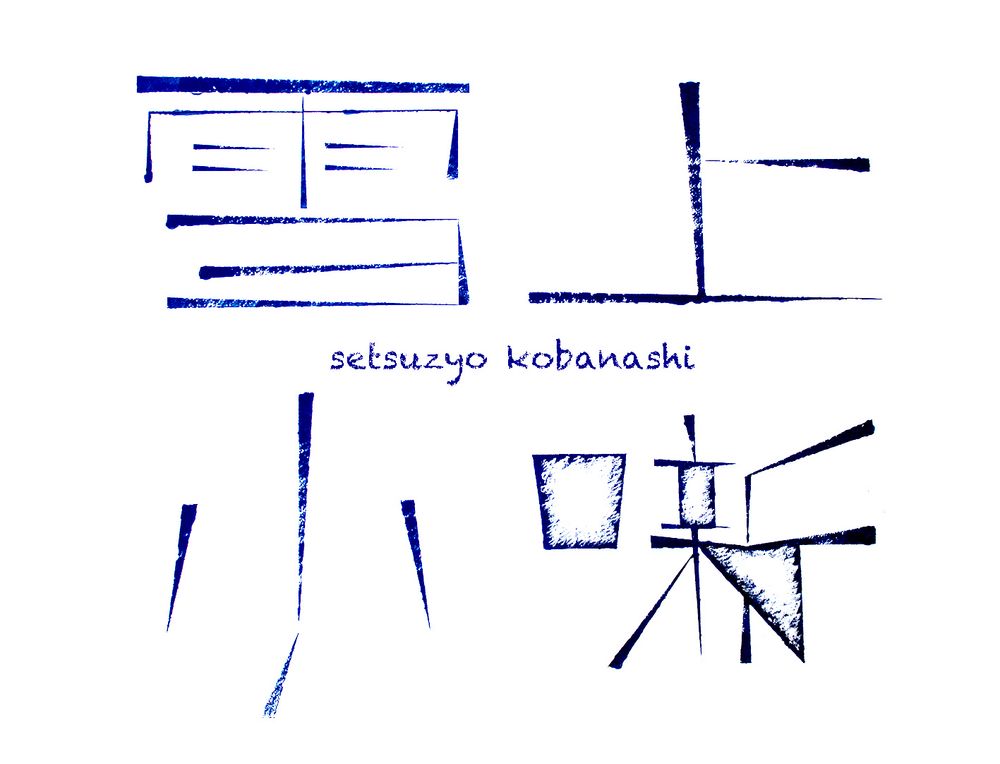 雪上
setsuzyo kobanashi
小噺